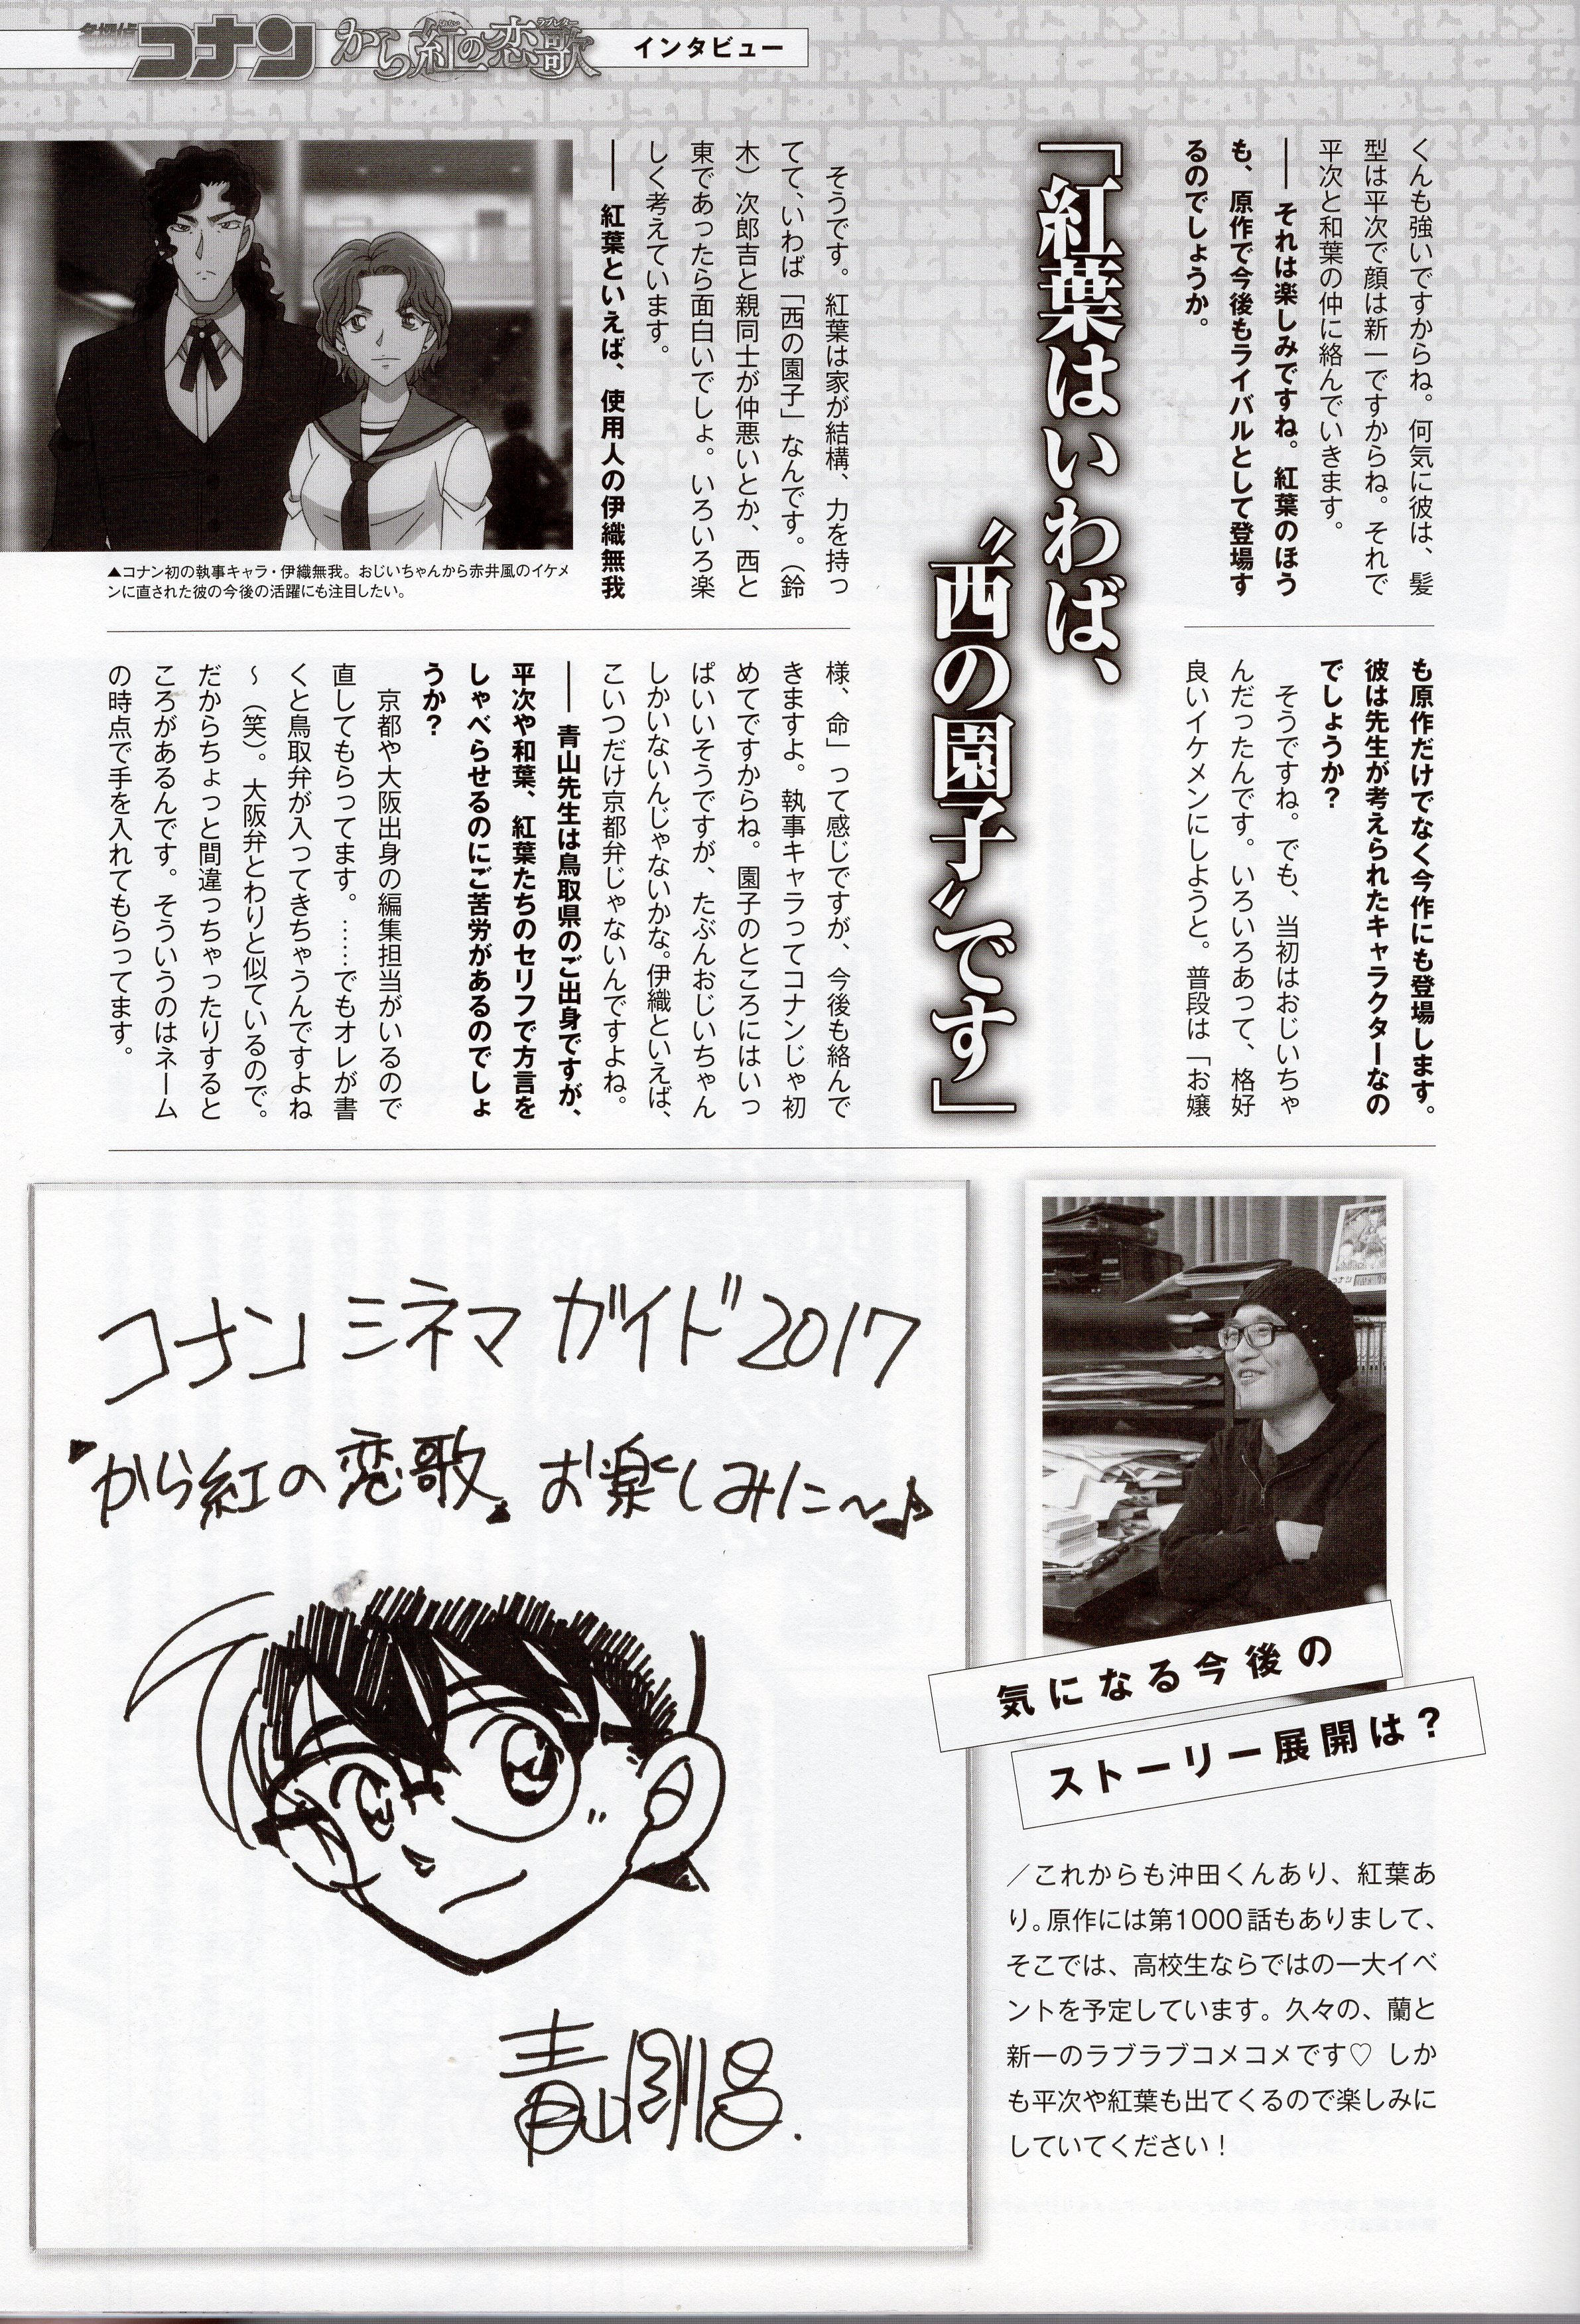 名探偵コナン から紅の恋歌 ラブレター インタビュー
くんも強いですからね。何気に彼は、髪
型は平次で顔は新一ですからね。それで
平次と和葉の仲に絡んでいきます。
── それは楽しみですね。紅葉のほう
も、原作で今後もライバルとして登場す
るのでしょうか。
「紅葉はいわば、
〝西の園子〟です」
そうです。紅葉は家が結構、力を持っ
てて、いわば「西の園子」なんです。（鈴
木）次郎吉と親同士が仲悪いとか、西と
東であったら面白いでしょ。いろいろ楽
しく考えています。
── 紅葉といえば、使用人の伊織無我
▲コナン初の執事キャラ・伊織無我。おじいちゃんから赤井風のイケメ
ンに直された彼の今後の活躍にも注目したい。
も原作だけでなく今作にも登場します。
彼は先生が考えられたキャラクターなの
でしょうか？
そうですね。でも、当初はおじいちゃ
んだったんです。いろいろあって、格好
良いイケメンにしようと。普段は「お嬢
様、命」って感じですが、今後も絡んで
きますよ。執事キャラってコナンじゃ初
めてですからね。園子のところにはいっ
ぱいいそうですが、たぶんおじいちゃん
しかいないんじゃないかな。伊織といえば、
こいつだけ京都弁じゃないんですよね。
── 青山先生は鳥取県のご出身ですが、
平次や和葉、紅葉たちのセリフで方言を
しゃべらせるのにご苦労があるのでしょ
うか？
京都や大阪出身の編集担当がいるので
直してもらってます。……でもオレが書
くと鳥取弁が入ってきちゃうんですよね
～（笑）。大阪弁とわりと似ているので。
だからちょっと間違っちゃったりすると
ころがあるんです。そういうのはネーム
の時点で手を入れてもらってます。
気になる今後の
ストーリー展開は？
／これからも沖田くんあり、紅葉あ
り。原作には第1000話もありまして、
そこでは、高校生ならではの一大イベ
ントを予定しています。久々の、蘭と
新一のラブラブコメコメです♡ しか
も平次や紅葉も出てくるので楽しみに
していてください！
コナン シネマ ガイド2017
『から紅の恋歌』お楽しみに～♪
青山剛昌.